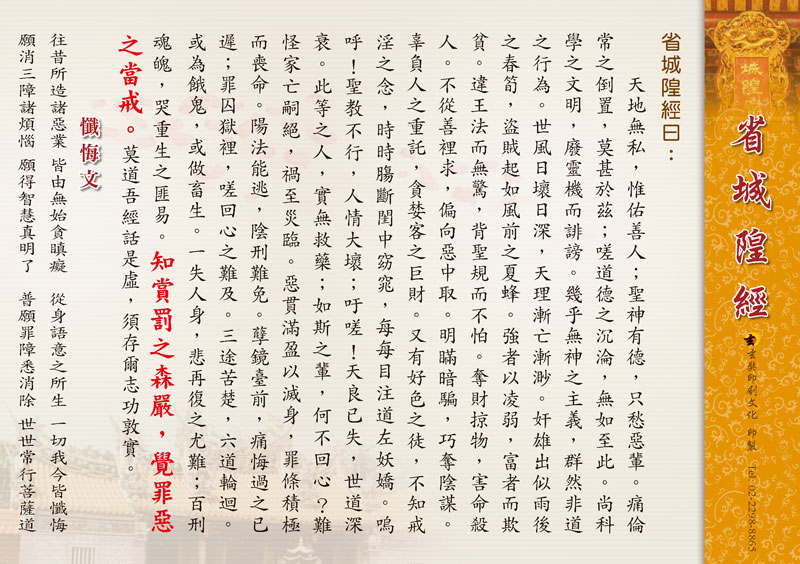 城隍
省城隍經
玄奘印刷文化 印製 Tel: 02-2298-8865
省城隍經曰：
天地無私，惟佑善人；聖神有德，只愁惡輩。痛倫
常之倒置，莫甚於茲；嗟道德之沉淪，無如至此。尚科
學之文明，廢靈機而誹謗。幾乎無神之主義，群然非道
之行為。世風日壞日深，天理漸亡漸渺。奸雄出似雨後
之春筍，盜賊起如風前之夏蜂。強者以凌弱，富者而欺
貧。違王法而無驚，背聖規而不怕。奪財掠物，害命殺
人。不從善裡求，偏向惡中取。明瞞暗騙，巧奪陰謀。
辜負人之重託，貪婪客之巨財。又有好色之徒，不知戒
淫之念，時時腸斷閨中窈窕，每每目注道左妖嬌。嗚
呼！聖教不行，人情大壞；吁嗟！天良已失，世道深
衰。此等之人，實無救藥；如斯之輩，何不回心？難
怪家亡嗣絕，禍至災臨。惡貫滿盈以滅身，罪條積極
而喪命。陽法能逃，陰刑難免。孽鏡臺前，痛悔過之已
遲；罪囚獄裡，嗟回心之難及。三途苦楚，六道輪迴。
或為餓鬼，或做畜生。一失人身，悲再復之尤難；百刑
魂魄，哭重生之匪易。知賞罰之森嚴，覺罪惡
之當戒。莫道吾經話是虛，須存爾志功敦實。
懺悔文
往昔所造諸惡業 皆由無始貪瞋癡 從身語意之所生 一切我今皆懺悔
願消三障諸煩惱 願得智慧真明了 普願罪障悉消除 世世常行菩薩道